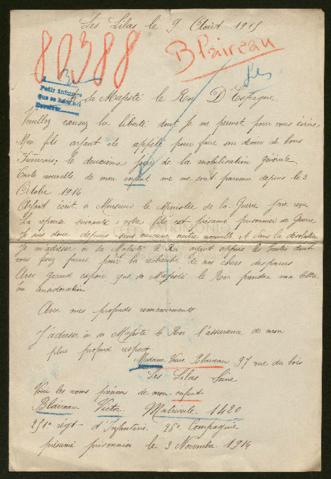 Les Lilas le 9 Août 1915
80388
Blaireau
Petit
A sa Majesté le Roi D'Espagne
Veuillez excusez la liberté dont je me permet pour vous écrire
Mon fils ayant été appelé pour faire son devoir de bons
le deuxieme jour de la mobilisation générale
nouvelle de mon enfant ne me sont parvenu depuis le 3
Octobre 1914
Ayant écrit a Monsieur le Ministre de la Guerre
La réponse suivante : votre fils est présumé prisonnier de Guerre
Je suis donc depuis sans aucune autre nouvelle. Et dans la désolation
Je m'adresse à sa Majesté le Roi ayant
vous pour la recherche de nos chers disparus
Avec grand espoir que sa Majesté le Roi prendra ma lettre
en considération
Avec mes profonds remerciements
J'adresse à sa Majesté le Roi l'assurance de mon
plus profond respect
Madame Vve Blaireau 37 rue du bois
Les Lilas Seine
Voici les noms prénoms de mon enfant
Blaireau Victor Matricule 1420
d'Infanterie 25e Compagnie
présumé prisonnier le 3 Novembre 1914